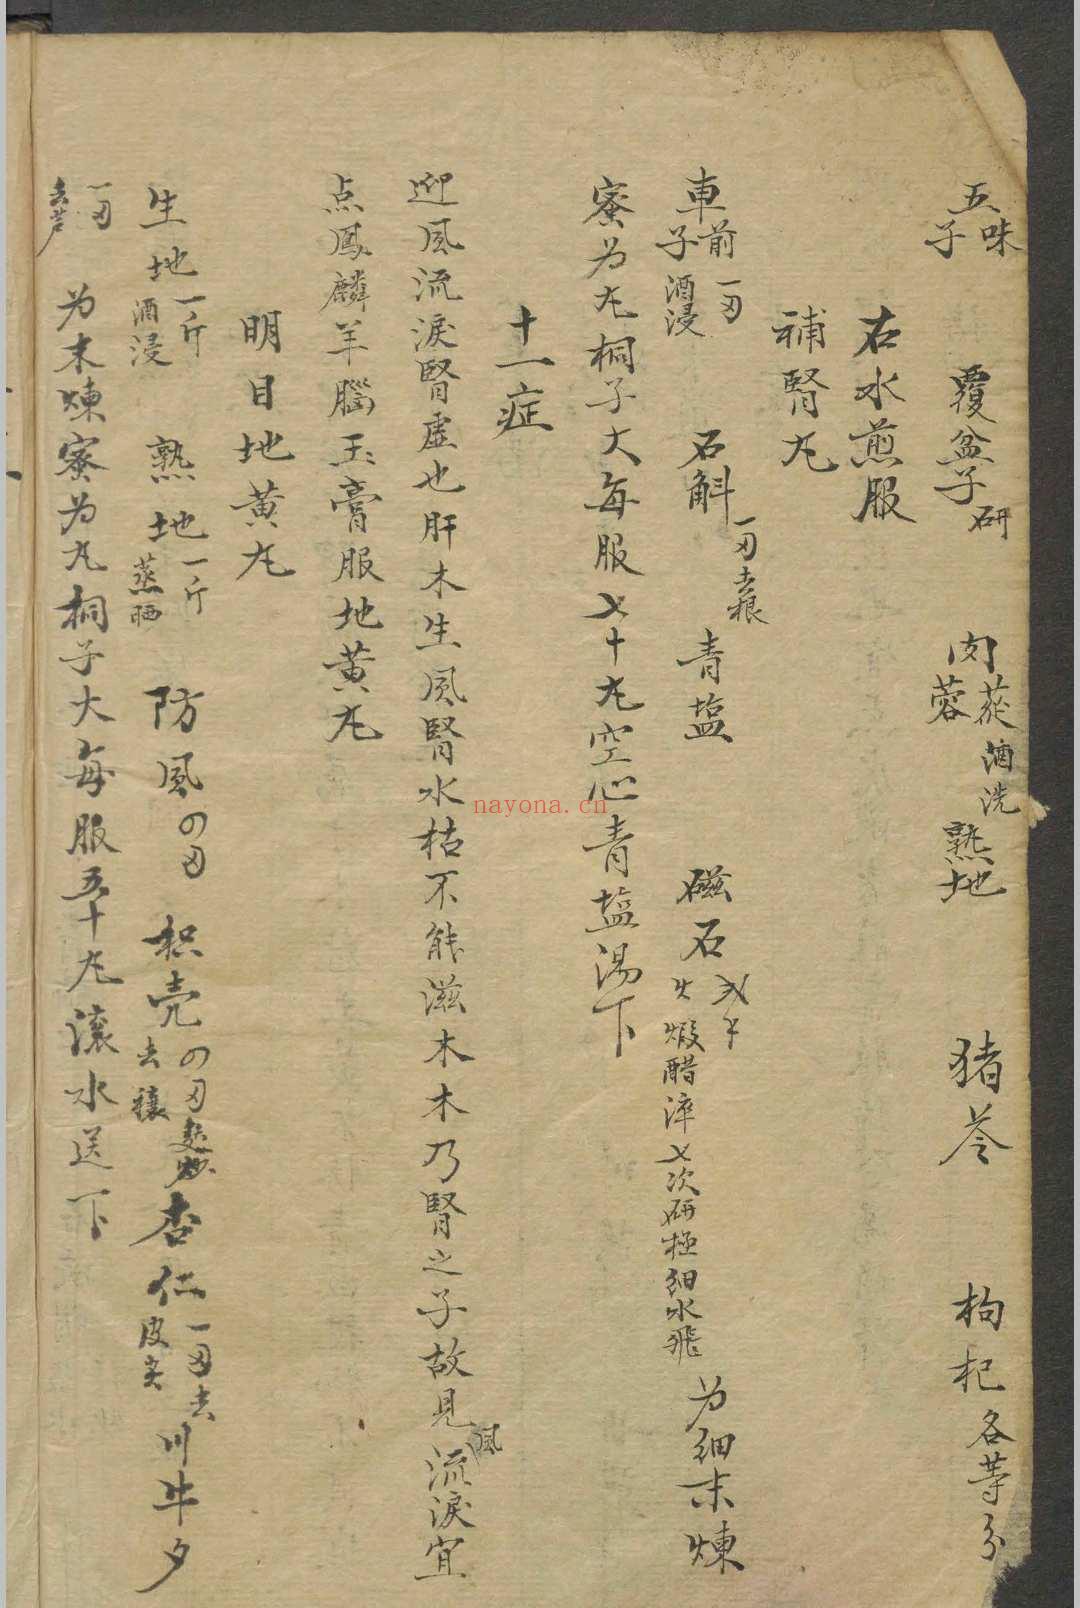 五味子 覆盆子研 肉蓯蓉酒洗 熟地 猪苓 枸杞各等分
右水煎服
補腎丸
車前子一両酒浸 石斛一両去根 青塩 磁石火煅醋淬七次研極細水飛 为細末煉
蜜为丸桐子大每服七十丸空心青塩湯下
十一症
迎風流淚腎虛也肝木生風腎水枯不能滋木木乃腎之子故見風流淚宜
点鳳麟羊腦玉膏服地黄丸
明目地黄丸
生地一斤酒浸 熟地一斤蒸晒 防風四両 枳壳四両去穰麩炒 杏仁一両去皮尖 川牛夕
一両去芦 为末煉蜜为丸桐子大每服五十丸滚水送下
nayona.cn